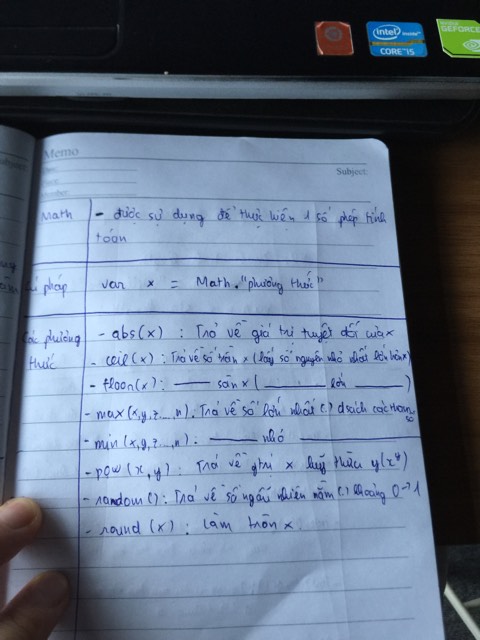 intel inside
CORE i5
GEFORCE
Memo
Subject:
Math - được sự dụng để thực hiện 1 số phép tính
toán
pháp var x = Math."phương thức"
Các phương - abs(x) : Trả về giá trị tuyệt đối của x
thức - ceil(x) : Trả về số trần x (lấy số nguyên nhỏ nhất lớn hơn x)
- floor(x) : —— sàn x ( —— lớn —— )
- max(x,y,z...,n). Trả về số lớn nhất (.) dsách các tham số
- min(x,y,z...,n). —— nhỏ ——
- pow(x,y) : Trả về gtrị x luỹ thừa y(x^y)
- random() : Trả về số ngẫu nhiên nằm (.) khoảng 0→1
- round(x) : làm tròn x.